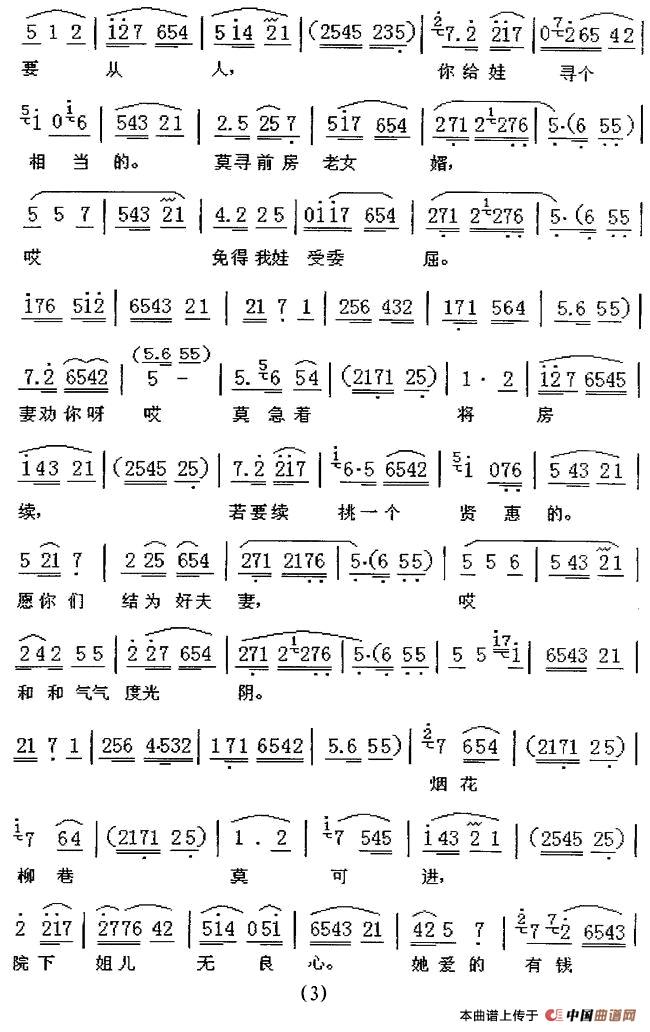 5 1 2 | 127 654 | 5 14 21 | (2545 235) | 27.2 217 | 07265 42 |
要 从 人， 你给娃 寻个
51 016 | 543 21 | 2.5 25 7 | 517 654 | 271 21276 | 5·(6 55) |
相 当 的。 莫寻前房 老女 婿，
5 5 7 | 543 21 | 4.2 2 5 | 0117 654 | 271 21276 | 5·(6 55 |
哎 免得我娃 受委 屈。
176 512 | 6543 21 | 21 7 1 | 256 432 | 171 564 | 5.6 55) |
(5.6 55)
7.2 6542 | 5 - | 5. 56 54 | (2171 25) | 1 · 2 | 127 6545 |
妻劝你呀 哎 莫急着 将 房
143 21 | (2545 25) | 7.2 217 | 16·5 6542 | 51 076 | 5 43 21 |
续， 若要续 挑一个 贤 惠 的。
5 21 7 | 2 25 654 | 271 2176 | 5·(6 55) | 5 5 6 | 5 43 21 |
愿你们 结为好夫 妻， 哎
242 55 | 2 27 654 | 271 21276 | 5·(6 55 | 5 5171 | 6543 21 |
和和气气 度光 阴。
21 7 1 | 256 4·532 | 171 6542 | 5.6 55) | 27 654 | (2171 25) |
烟花
17 64 | (2171 25) | 1 . 2 | 17 545 | 143 21 | (2545 25) |
柳巷 莫 可 进，
2 217 | 2776 42 | 514 051 | 6543 21 | 425 7 | 27 72 6543 |
院下 姐儿 无 良 心。 她爱的 有钱
(3)
本曲谱上传于 中国曲谱网